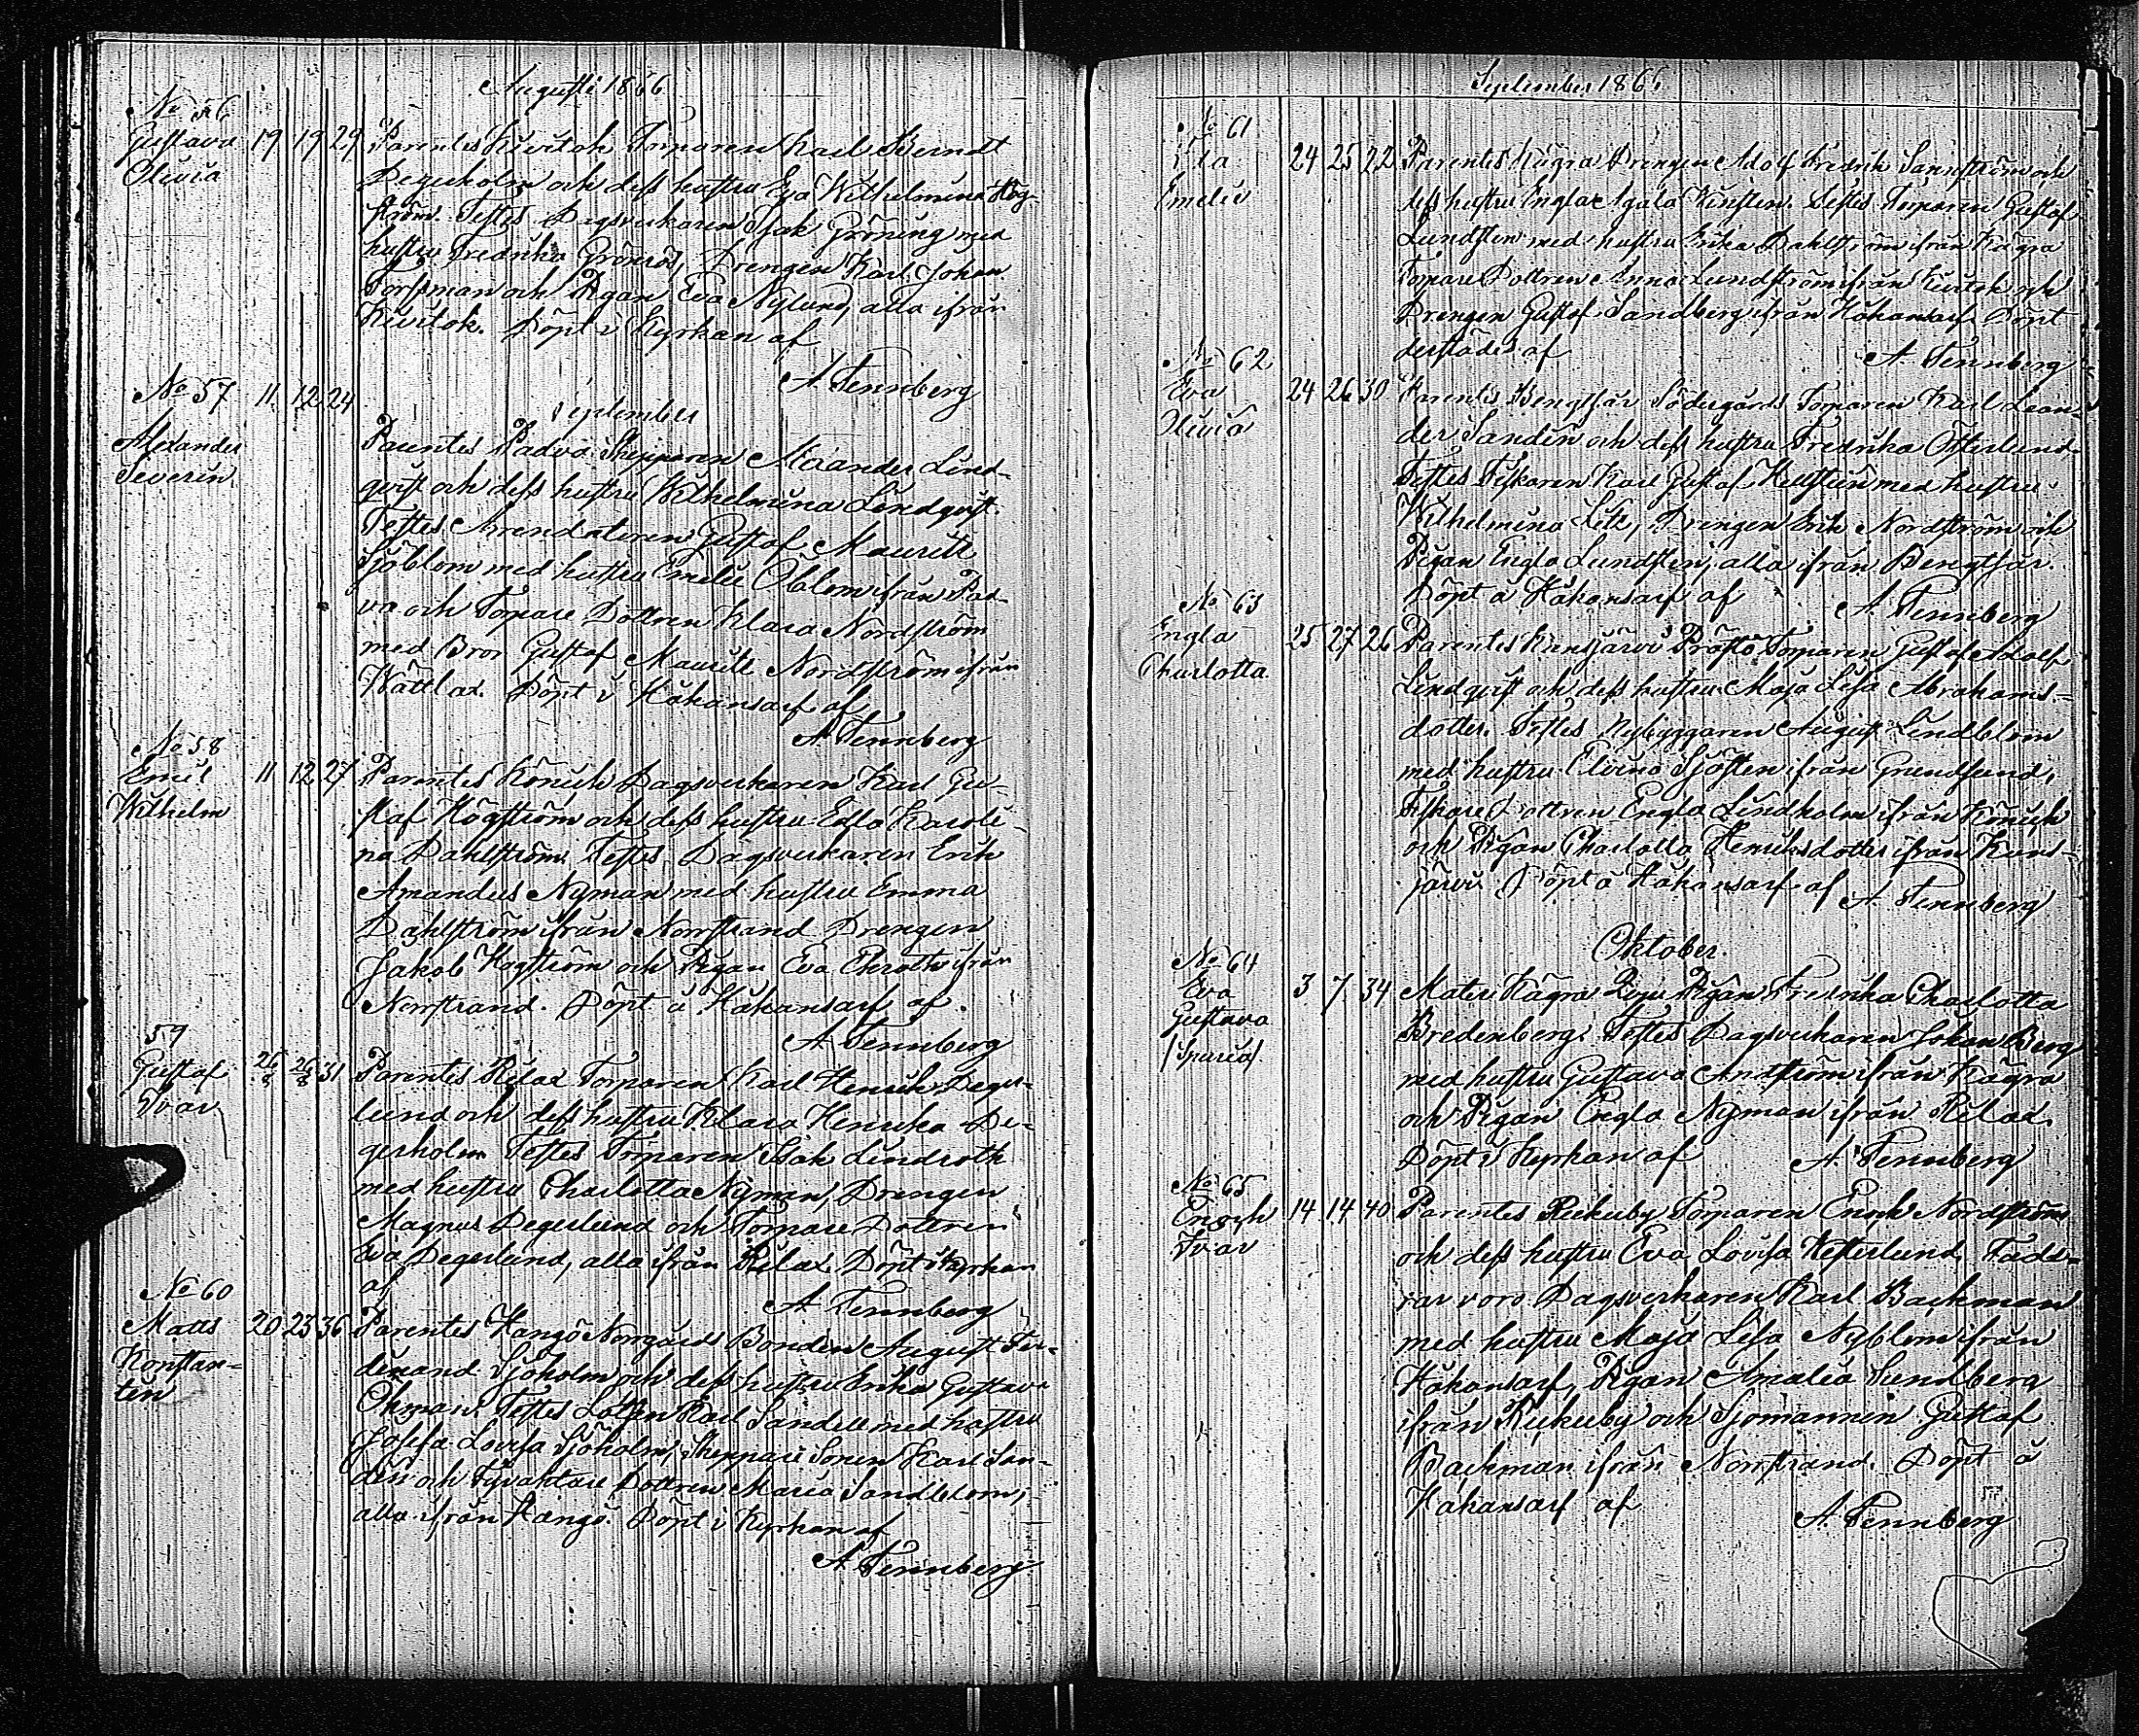 Augusti 1866
No 56
Gustava 19 19 29 Parentes Kivitok Torparen Karl Berndt
Olivia Degerholm och dess hustru Eva Wilhelmina Hög-
ström. Testes Dagsverkaren Isak Gröning med
hustru Fredrika Grönros, Drengen Karl Johan
Forsman och Pigan Eva Nylund, alla ifrån
Kivitok. Döpt i Kyrkan af
A. Fennberg
September
No 57 11 12 24
Alexander Parentes Padva Skepparen Alexander Lind-
Severin qvist och dess hustru Wilhelmina Lindqvist.
Testes Arrendatoren Gustaf Mauritz
Sjöblom med hustru Emelie Öblom ifrån Pad-
va och Torpare Dottren Klara Nordström
med Bror Gustaf Mauritz Nordström ifrån
Wättlax. Döpt i Håkansarf af
A. Fennberg
No 58
Emil 11 12 27 Parentes Könich Dagsverkaren Karl Gu-
Wilhelm staf Högström och dess hustru Edla Karoli-
na Dahlström. Testes Dagsverkaren Erik
Amandus Nyman med hustru Emma
Dahlström ifrån Norrstrand Drengen
Jakob Högström och Pigan Eva Ekroth ifrån
Norrstrand. Döpt å Håkansarf af
A. Fennberg
59
Gustaf 26/8 26/8 31 Parentes Rilax Torparen Karl Henrik Deger-
Ivar lund och dess hustru Klara Henrika De-
gerholm Testes Torparen Isak Lindroth
med hustru Charlotta Nyman, Drengen
Magnus Degerlund och Torpare Dottren
Eva Degerlund, alla ifrån Rilax. Döpt i Kyrkan
af
A. Fennberg
No 60
Matts 20 23 36 Parentes Hangö Norrgårds Bonden August Fer-
Konstan- dinand Sjöholm och dess hustru Erika Gustava
tin Öhman. Testes Lotsen Karl Sandell med hustru
Josefa Lovisa Sjöholm, Skeppare Sonen Karl San-
dén och Fyrvaktare Dottren Maria Sandblom,
alla ifrån Hangö. Döpt i Kyrkan af
A. Fennberg
September 1866
No 61
24 25 22 Parentes Kägra Drengen Adolf Fredrik Sandström och
Emelie dess hustru Engla Agata Kinsten. Testes Torparen Gustaf
Lundsten med hustru Erika Dahlström ifrån Kägra
Torpare Dottren Anna Lundström ifrån Kivitok och
Drengen Gustaf Sandberg ifrån Håkansarf. Döpt
derstädes af
A. Fennberg
No 62
Eva 24 26 30 Parentes Bengtsår Södergårds Torparen Karl Lean-
Olivia der Sandin och dess hustru Fredrika Österlund.
Testes Fiskaren Karl Gustaf Hellstén med hustru
Wilhelmina Litz, Drengen Erik Nordström och
Pigan Engla Lundsten, alla ifrån Bengtsår.
Döpt å Håkansarf af
A. Fennberg
No 63
Engla 25 27 26 Parentes Kunsjärvi Prästö Torparen Gustaf Adolf
Charlotta Lindqvist och dess hustru Maja Lisa Abrahams-
dotter. Testes Nybyggaren August Lindblom
med hustru Elvina Sjösten ifrån Grundsund,
Fiskare Dottren Engla Lindholm ifrån Könich
och Pigan Charlotta Henriksdotter ifrån Kuns-
järvi Döpt å Håkansarf af
A. Fennberg
Oktober.
No 64
Eva 3 7 34 Mater Kägra Pigan Fredrika Charlotta
Gustava Bredenberg. Testes Dagsverkaren Johan Berg
/Spuria/ med hustru Gustava Andström ifrån Kägra
och Pigan Engla Nyman ifrån Rilax.
Döpt i Kyrkan af
A. Fennberg
No 65
Enoch 14 14 40 Parentes Rekuby Torparen Enok Nordström
Ivar och dess hustru Eva Lovisa Westerlund Fadd-
rar voro Dagsverkaren Karl Backman
med hustru Maja Lisa Nyblom ifrån
Håkansarf, Pigan Amalia Sundberg
ifrån Rekuby och Sjömannen Gustaf
Backman ifrån Norrstrand. Döpt å
Håkansarf af
A. Fennberg